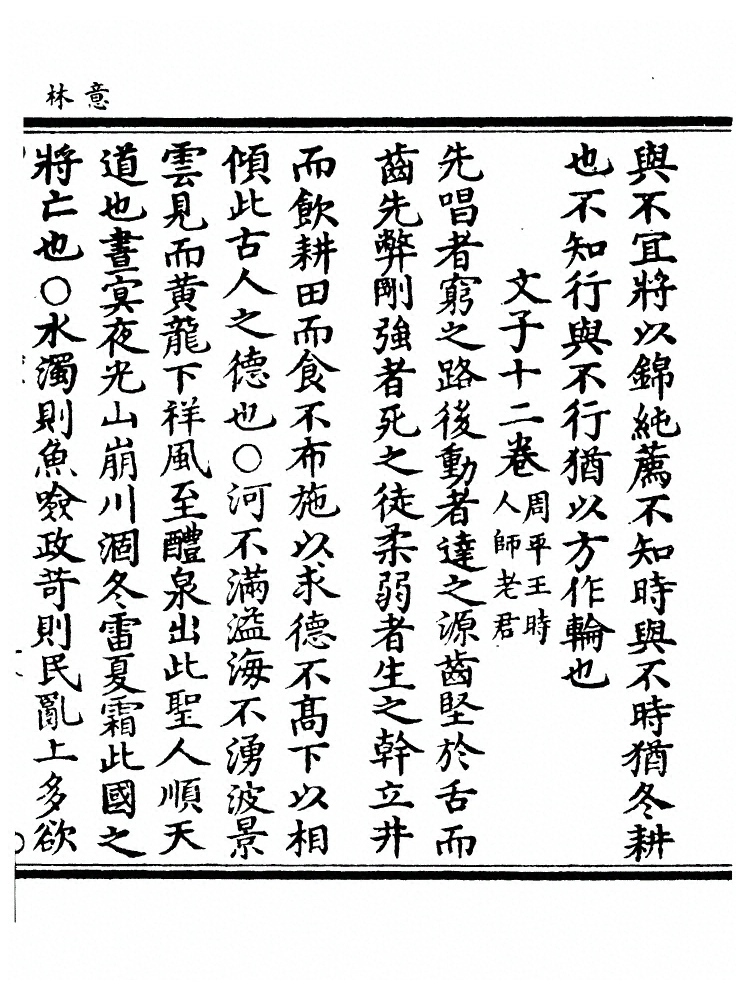 意林
與不宜將以錦純薦不知時與不時猶冬耕
也不知行與不行猶以方作輪也
文子十二卷周平王時人師老君
先唱者窮之路後動者達之源齒堅於舌而
齒先弊剛強者死之徒柔弱者生之幹立井
而飲耕田而食不布施以求德不高下以相
傾此古人之德也○河不滿溢海不湧波景
雲見而黃龍下祥風至醴泉出此聖人順天
道也晝冥夜光山崩川涸冬雷夏霜此國之
將亡也○水濁則魚噞政苛則民亂上多欲